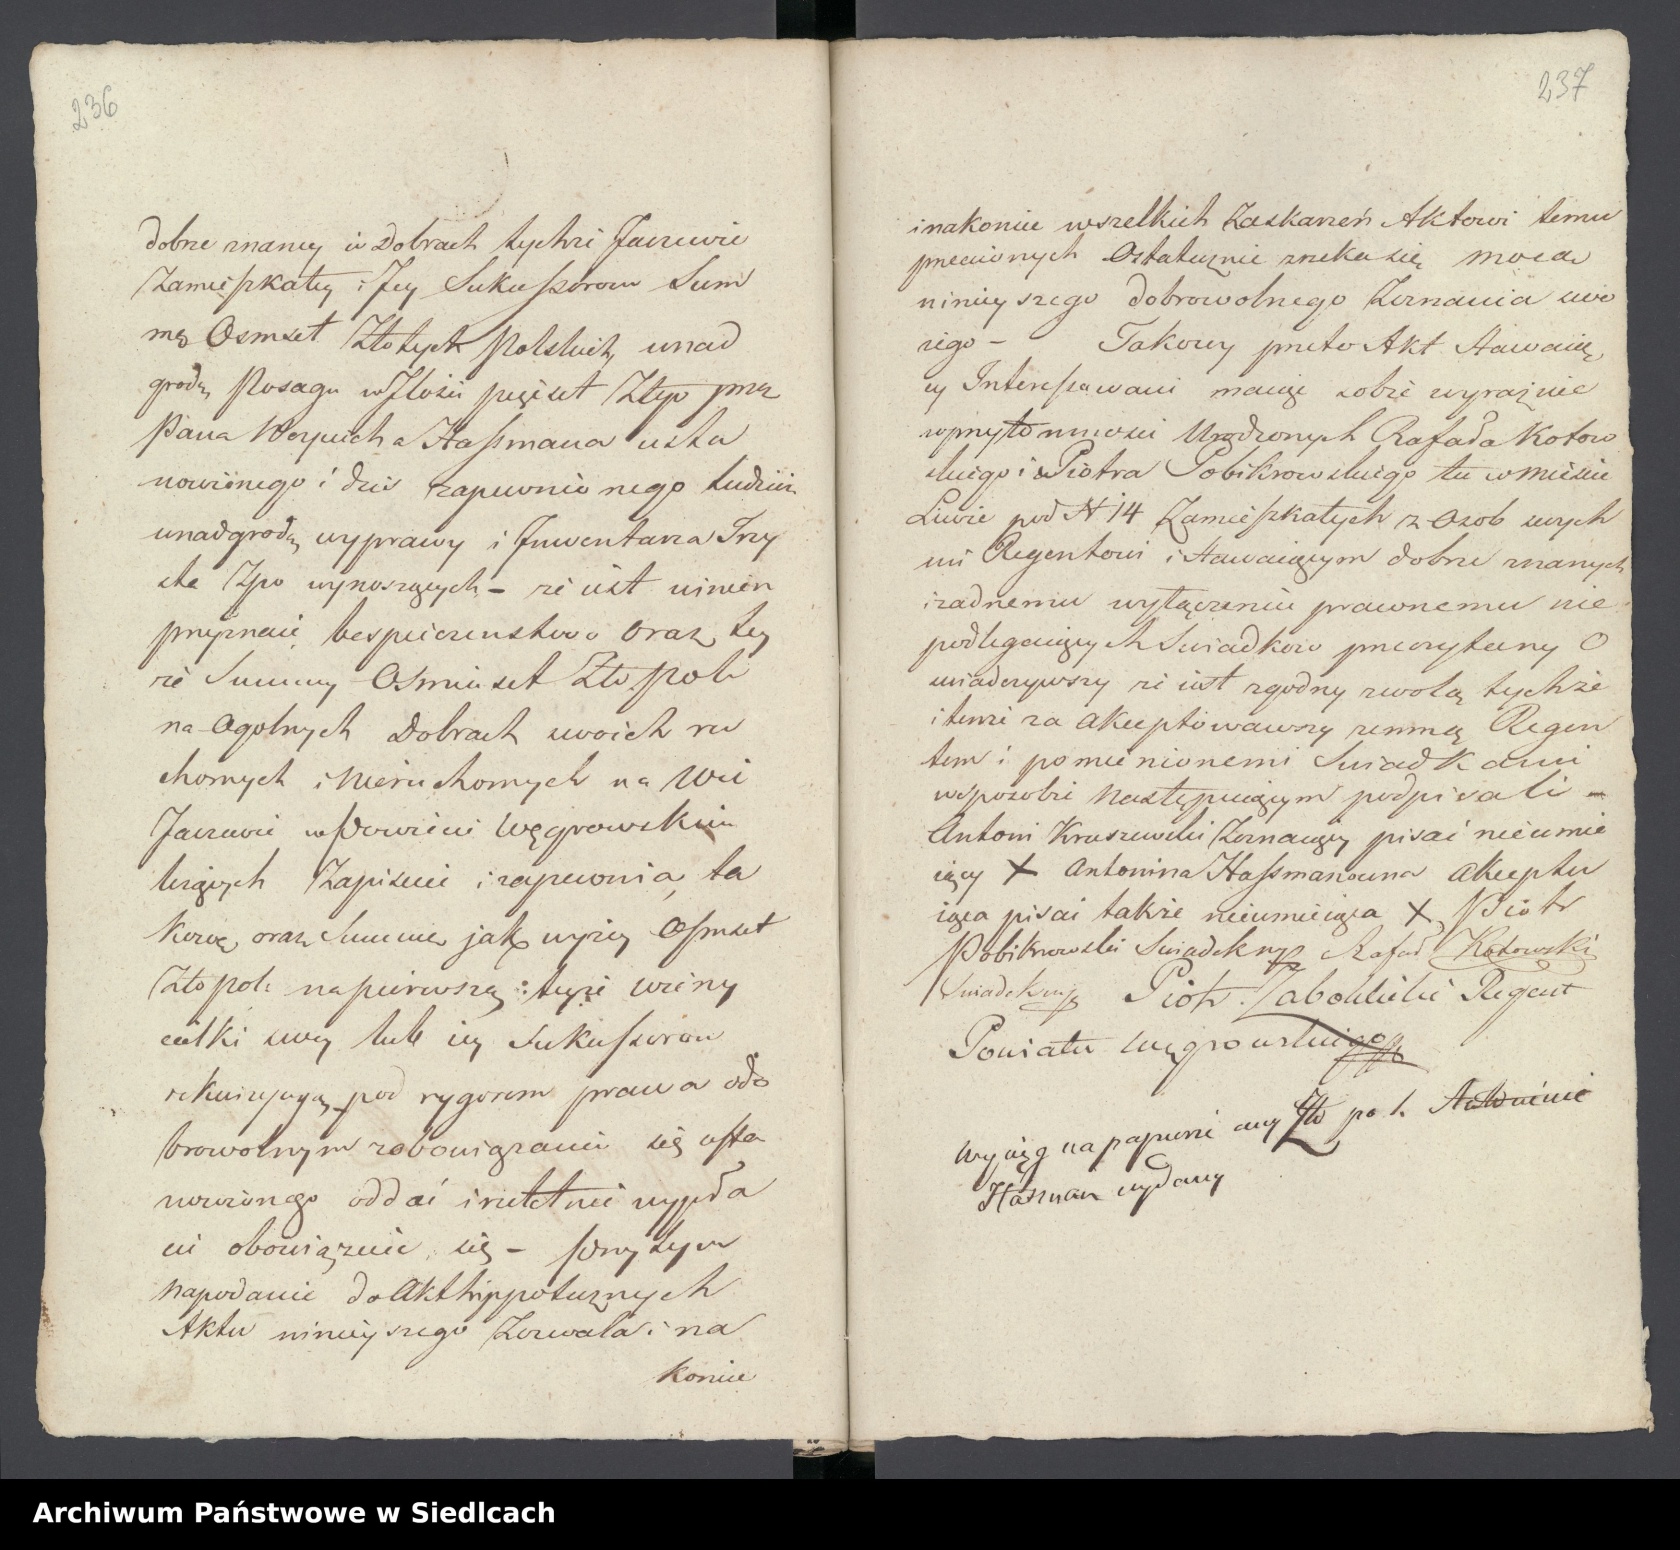 236
dobrze znaney w Dobrach tychże Jarzewie
Zamieszkałey i Jey Sukussorom Sum
mę Osmset Złotych Polskich, wnad
grodę Posagu w Ilości pięćset Złtp przez
Pana Woyciecha Hassmana usta
nowionego i dziś zapewnionego tudzież
wnadgrodę wyprawy i Inwentarza Trzy
sta Złpo wynoszących – że iest winien
przyznaie, bespieczenstwo oraz tey
że Summy Osmiuset Zło. Pol:
na Ogolnych Dobrach swoich ru
chomych i Nieruchomych na Wsi
Jarzewie w Powiecie Węgrowskim
leżących Zapisuie i zapewnia, ta
kową oraz Summę jak wyżey Osmset
Zło pol: na pierwszą teyże wziny
ciotki swey lub iey Sukussorow
rekwizycyą pod rygorem prawa do
browolnym zobowiązaniu się usta
nowionego oddać i rzetelnie wypła
cić obowiązuie się – Przytym
na podanie do Akt hippotecznych
Aktu ninieyszego Zezwala i na
koniec
237
i nakoniec wszelkich Zaskarżeń Aktowi temu
przeciwnych Ostatecznie zrzeka się mocą
ninieyszego dobrowolnego Zeznania swo
iego – Takowy przeto Akt Stawaiąc
cy Interessowani maiąc sobie wyraznie
w przytomnosci Urodzonych Rafała Kotow
skiego i Piotra Pobikrowskiego tu w Miescie
Liwie pod N 14 Zamieszkałych z Osob swych
mi Regentowi i Stawaiącym dobrze znanych
i żadnemu wyłączeniu prawnemu nie
podlegaiących Swiadkow przeczytany O
swiadczywszy że iest zgodny z wolą tychże
i temże za akceptowawszy ze mną Regen
tem i pomienionemi Swiadkami
w sposobie Następuiącym podpisali –
Antoni Kruszewski Zeznaiący pisać nieumie
iący X Antonina Hassmanowna Akceptu
iąca pisać także nieumieiąca X Piotr
Pobikrowski Swiadek mp Rafał Kotowski
Swiadek mp Piotr Zaboklicki Regent
Powiatu Węgrowskiego
Wyciąg na papierze ceny Zło pol. Antoninie
Hasman wydany
Archiwum Państwowe w Siedlcach